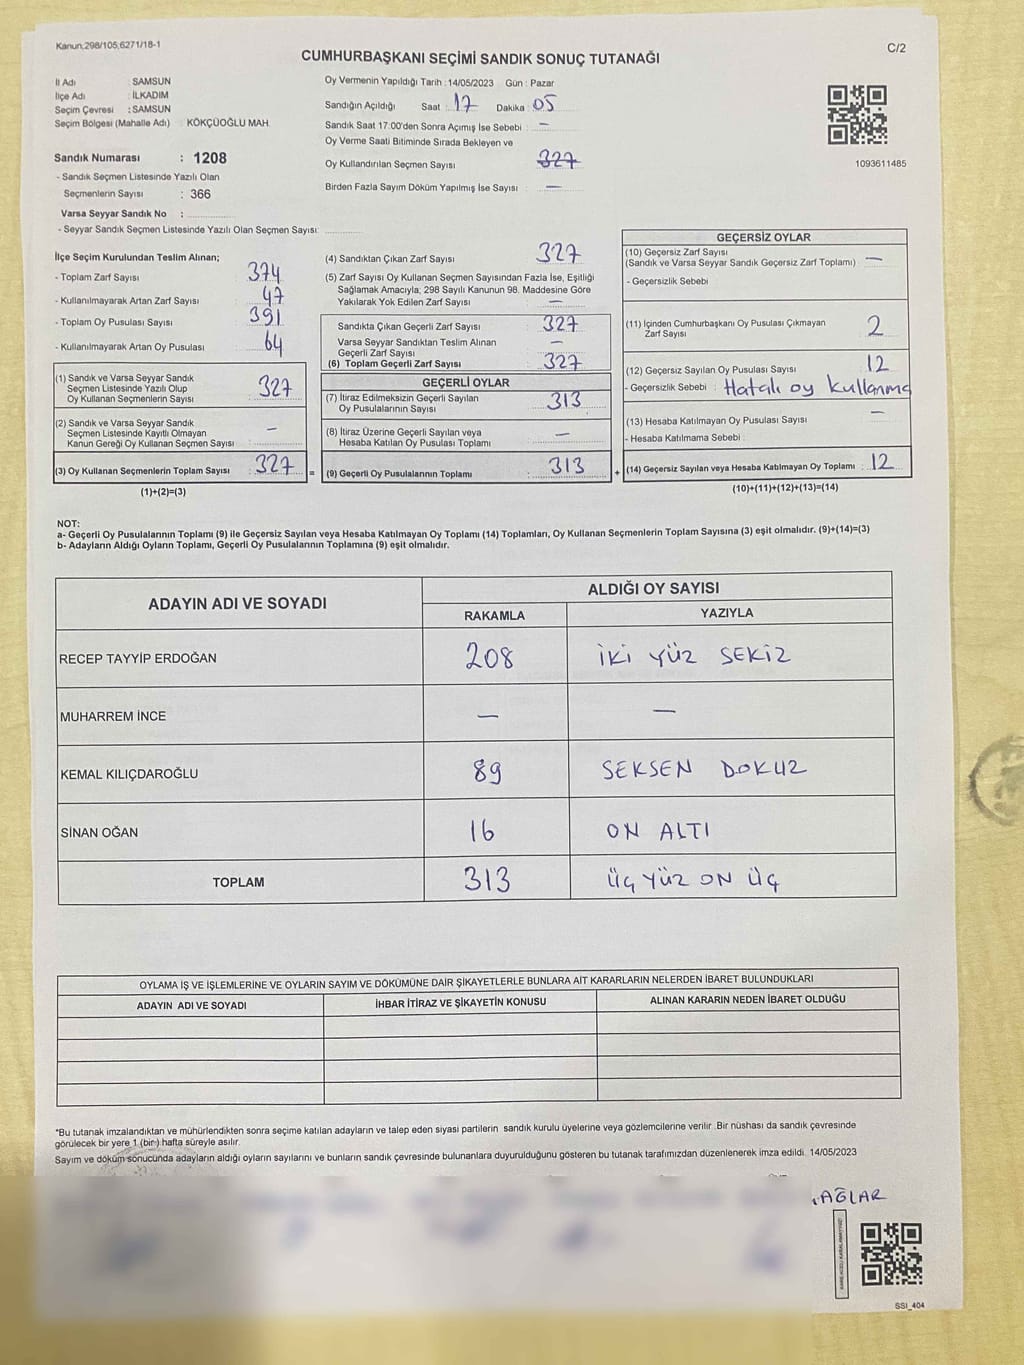 Kanun;298/105;6271/18-1
C/2
CUMHURBAŞKANI SEÇİMİ SANDIK SONUÇ TUTANAĞI
İl Adı : SAMSUN
İlçe Adı : İLKADIM
Seçim Çevresi : SAMSUN
Seçim Bölgesi (Mahalle Adı) : KÖKÇÜOĞLU MAH.
Sandık Numarası : 1208
- Sandık Seçmen Listesinde Yazılı Olan
Seçmenlerin Sayısı : 366
Varsa Seyyar Sandık No :
- Seyyar Sandık Seçmen Listesinde Yazılı Olan Seçmen Sayısı:
Oy Vermenin Yapıldığı Tarih : 14/05/2023 Gün : Pazar
Sandığın Açıldığı Saat : 17 Dakika : 05
Sandık Saat 17:00'den Sonra Açımış İse Sebebi : —
Oy Verme Saati Bitiminde Sırada Bekleyen ve
Oy Kullandırılan Seçmen Sayısı 327
Birden Fazla Sayım Döküm Yapılmış İse Sayısı : —
1093611485
İlçe Seçim Kurulundan Teslim Alınan;
- Toplam Zarf Sayısı 374
- Kullanılmayarak Artan Zarf Sayısı 47
- Toplam Oy Pusulası Sayısı 391
- Kullanılmayarak Artan Oy Pusulası 64
(1) Sandık ve Varsa Seyyar Sandık
Seçmen Listesinde Yazılı Olup
Oy Kullanan Seçmenlerin Sayısı 327
(2) Sandık ve Varsa Seyyar Sandık
Seçmen Listesinde Kayıtlı Olmayan
Kanun Gereği Oy Kullanan Seçmen Sayısı —
(3) Oy Kullanan Seçmenlerin Toplam Sayısı 327 =
(1)+(2)=(3)
(4) Sandıktan Çıkan Zarf Sayısı 327
(5) Zarf Sayısı Oy Kullanan Seçmen Sayısından Fazla İse, Eşitliği
Sağlamak Amacıyla; 298 Sayılı Kanunun 98. Maddesine Göre
Yakılarak Yok Edilen Zarf Sayısı —
Sandıkta Çıkan Geçerli Zarf Sayısı 327
Varsa Seyyar Sandıktan Teslim Alınan
Geçerli Zarf Sayısı —
(6) Toplam Geçerli Zarf Sayısı 327
GEÇERLİ OYLAR
(7) İtiraz Edilmeksizin Geçerli Sayılan
Oy Pusulalarının Sayısı 313
(8) İtiraz Üzerine Geçerli Sayılan veya
Hesaba Katılan Oy Pusulası Toplamı —
(9) Geçerli Oy Pusulalarının Toplamı : 313 +
GEÇERSİZ OYLAR
(10) Geçersiz Zarf Sayısı
(Sandık ve Varsa Seyyar Sandık Geçersiz Zarf Toplamı) —
- Geçersizlik Sebebi
(11) İçinden Cumhurbaşkanı Oy Pusulası Çıkmayan
Zarf Sayısı 2
(12) Geçersiz Sayılan Oy Pusulası Sayısı 12
- Geçersizlik Sebebi : Hatalı oy kullanma
(13) Hesaba Katılmayan Oy Pusulası Sayısı —
- Hesaba Katılmama Sebebi :
(14) Geçersiz Sayılan veya Hesaba Katılmayan Oy Toplamı : 12
(10)+(11)+(12)+(13)=(14)
NOT:
a- Geçerli Oy Pusulalarının Toplamı (9) ile Geçersiz Sayılan veya Hesaba Katılmayan Oy Toplamı (14) Toplamları, Oy Kullanan Seçmenlerin Toplam Sayısına (3) eşit olmalıdır. (9)+(14)=(3)
b- Adayların Aldığı Oyların Toplamı, Geçerli Oy Pusulalarının Toplamına (9) eşit olmalıdır.
ADAYIN ADI VE SOYADI ALDIĞI OY SAYISI
RAKAMLA YAZIYLA
RECEP TAYYİP ERDOĞAN 208 İKİ YÜZ SEKİZ
MUHARREM İNCE — —
KEMAL KILIÇDAROĞLU 89 SEKSEN DOKUZ
SİNAN OĞAN 16 ON ALTI
TOPLAM 313 ÜÇ YÜZ ON ÜÇ
OYLAMA İŞ VE İŞLEMLERİNE VE OYLARIN SAYIM VE DÖKÜMÜNE DAİR ŞİKAYETLERLE BUNLARA AİT KARARLARIN NELERDEN İBARET BULUNDUKLARI
ADAYIN ADI VE SOYADI İHBAR İTİRAZ VE ŞİKAYETİN KONUSU ALINAN KARARIN NEDEN İBARET OLDUĞU
*Bu tutanak imzalandıktan ve mühürlendikten sonra seçime katılan adayların ve talep eden siyasi partilerin sandık kurulu üyelerine veya gözlemcilerine verilir. Bir nüshası da sandık çevresinde
görülecek bir yere 1 (bir) hafta süreyle asılır.
Sayım ve döküm sonucunda adayların aldığı oyların sayılarını ve bunların sandık çevresinde bulunanlara duyurulduğunu gösteren bu tutanak tarafımızdan düzenlenerek imza edildi. 14/05/2023
AĞLAR
SSI_404